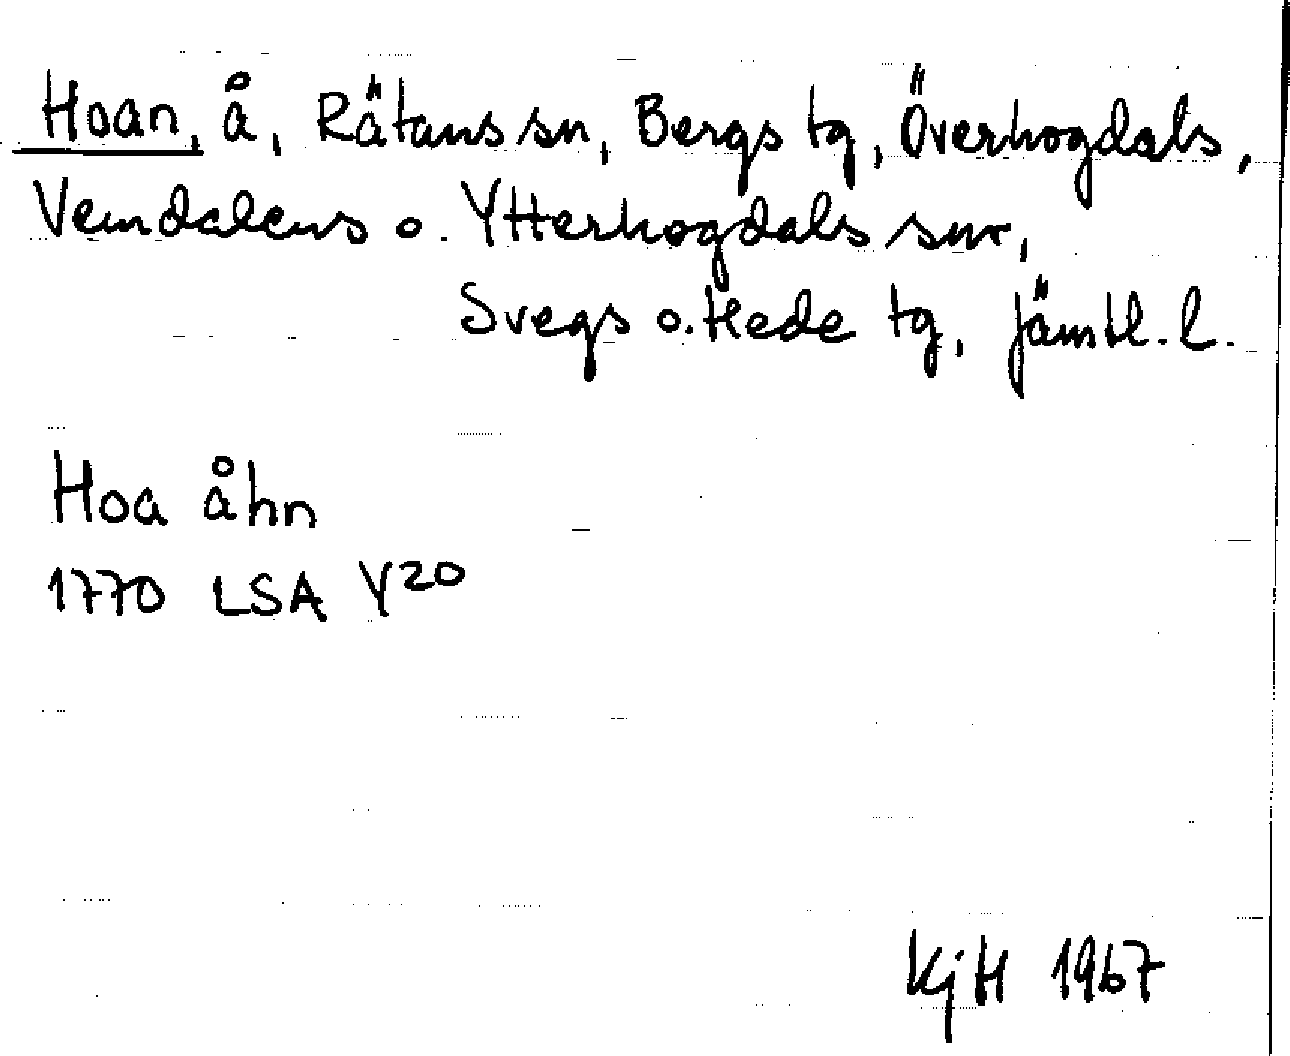 Hoan, å, Rätans sn, Bergs tg, Överhogdals,
Vemdalens o. Ytterhogdals snr,
Svegs o. Hede tg, Jämtl. l.
Hoa åhn
1770 LSA Y20
KjH 1967